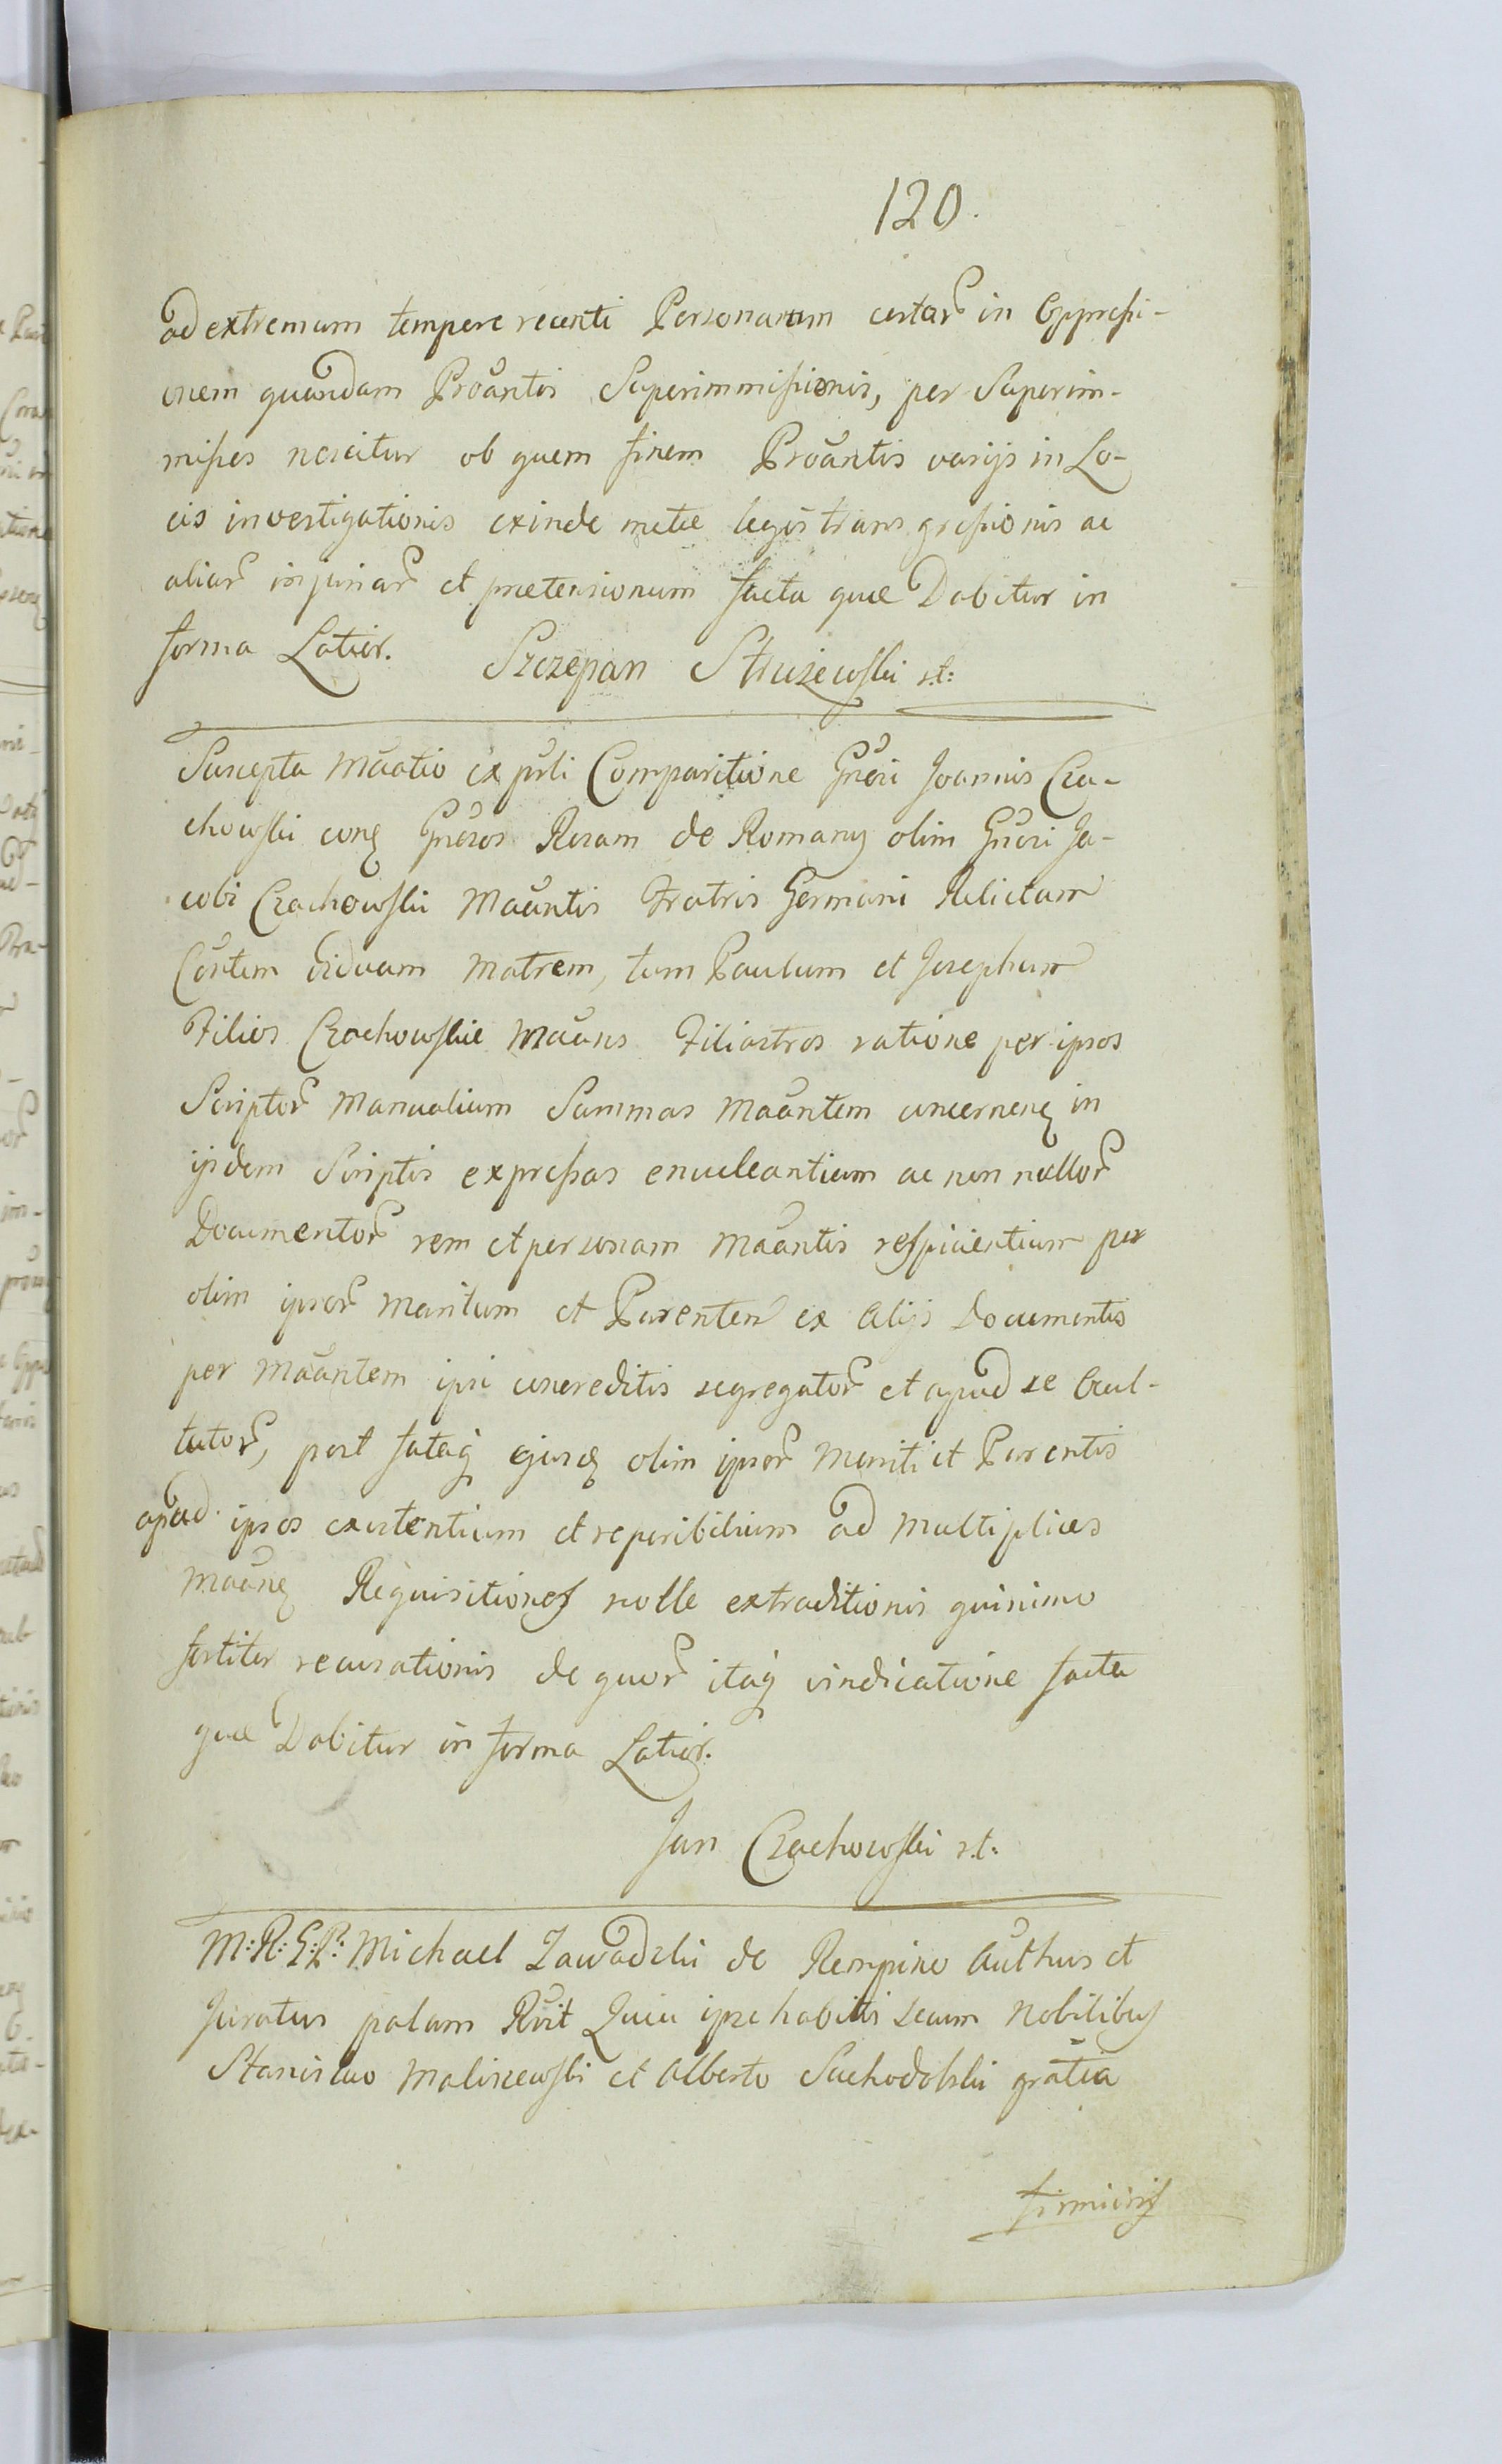 120.
ad extremum tempore recenti Personarum certar in Oppressi-
onem quandam Proantis Superimmissionis, per Superim-
missos noscitur ob quem finem Proantis varijs in Lo-
cis investigationis exinde metæ legis transgressionis ac
aliar injuriar et prætensionum facta quæ Dabitur in
forma Latior. Szczepan Strużewski st:
Suscepta Maatio ex prli Comparitione Gnosi Joannis Cza-
chowski conq Gnosos Rozam de Romany olim Gnosi Ja-
cobi Czachowski Maantis Fratris Germani Relictam
Cortem viduam Matrem, tum Paulum et Josephum
Filios Czachowskie Maans Filiastros ratione per ipsos
Scriptor Manualium Summas Maantem concernenq in
ijsdem Scriptis expressas enucleantium ac non nullor
Documentor rem et personam Maantis respicientium per
olim ipsor Maritum et Parentem ex Alijs Documentis
per Maantem ipsi concreditis segregator et apud se Ocul-
tator, post fataq ejusq olim ipsor Mariti et Parentis
apud ipsos existentium et reperibilium ad Multiplices
Maanq Requisitiones nolle extraditionis quinimo
fortiter recusationis de quor itaq vindicatione facta
quæ Dabitur in forma Latior.
Jan Czachowski st:
M: R: G: R: Michael Zawadzki de Rempino Authus et
Juratus palam Rvit Quia ipse habitis secum Nobilibus
Stanislao Maliszewski et Alberto Suchodolski gratia